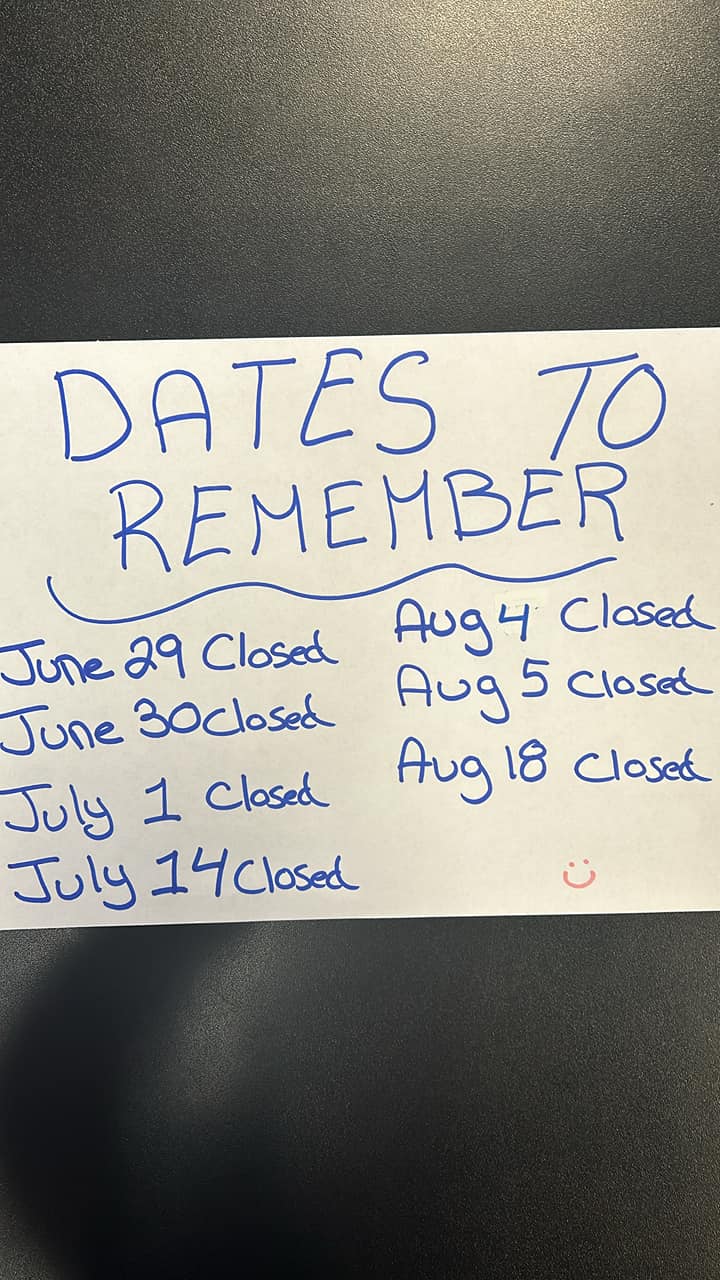 DATES TO
REMEMBER
June 29 Closed
June 30 Closed
July 1 Closed
July 14 Closed
Aug 4 Closed
Aug 5 Closed
Aug 18 Closed